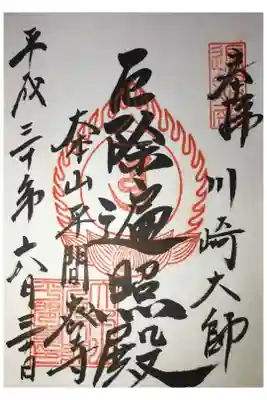 奉拝
川崎大師
厄除遍照殿
大本山平間寺
平成三十年六月日